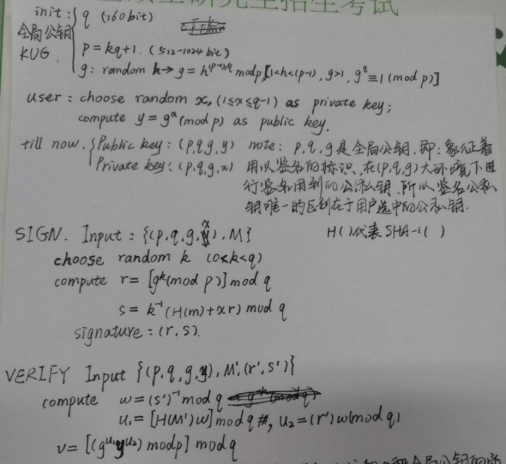 全国硕士研究生招生考试
init: { q (160bit)
全局公钥
KUG
p = kq+1. (512-1024bit)
g: random h → g = h^(p-1)/q mod p [1<h<(p-1), g>1, g^q ≡ 1 (mod p)]
user: choose random x, (1≤x≤q-1) as private key;
compute y = g^x (mod p) as public key.
till now. { Public key: (p,q,g,y) note: p,q,g是全局公钥,即:
Private key: (p,q,g,x) 用以签名的标识,在(p,q,g)大环境下进
行签名用到的公私钥,所以签名公私
钥唯一的区别在于用户选中的公私钥.
SIGN. Input: {(p,q,g,x), M} H()代表SHA-1()
choose random k (0<k<q)
compute r = [g^k (mod p)] mod q
s = k^-1 (H(m)+xr) mod q
signature: (r,s).
VERIFY Input {(p,q,g,y), M', (r',s')}
compute w = (s')^-1 mod q
u₁ = [H(M')w] mod q, u₂ = (r')w(mod q)
v = [(g^u₁ y^u₂) mod p] mod q